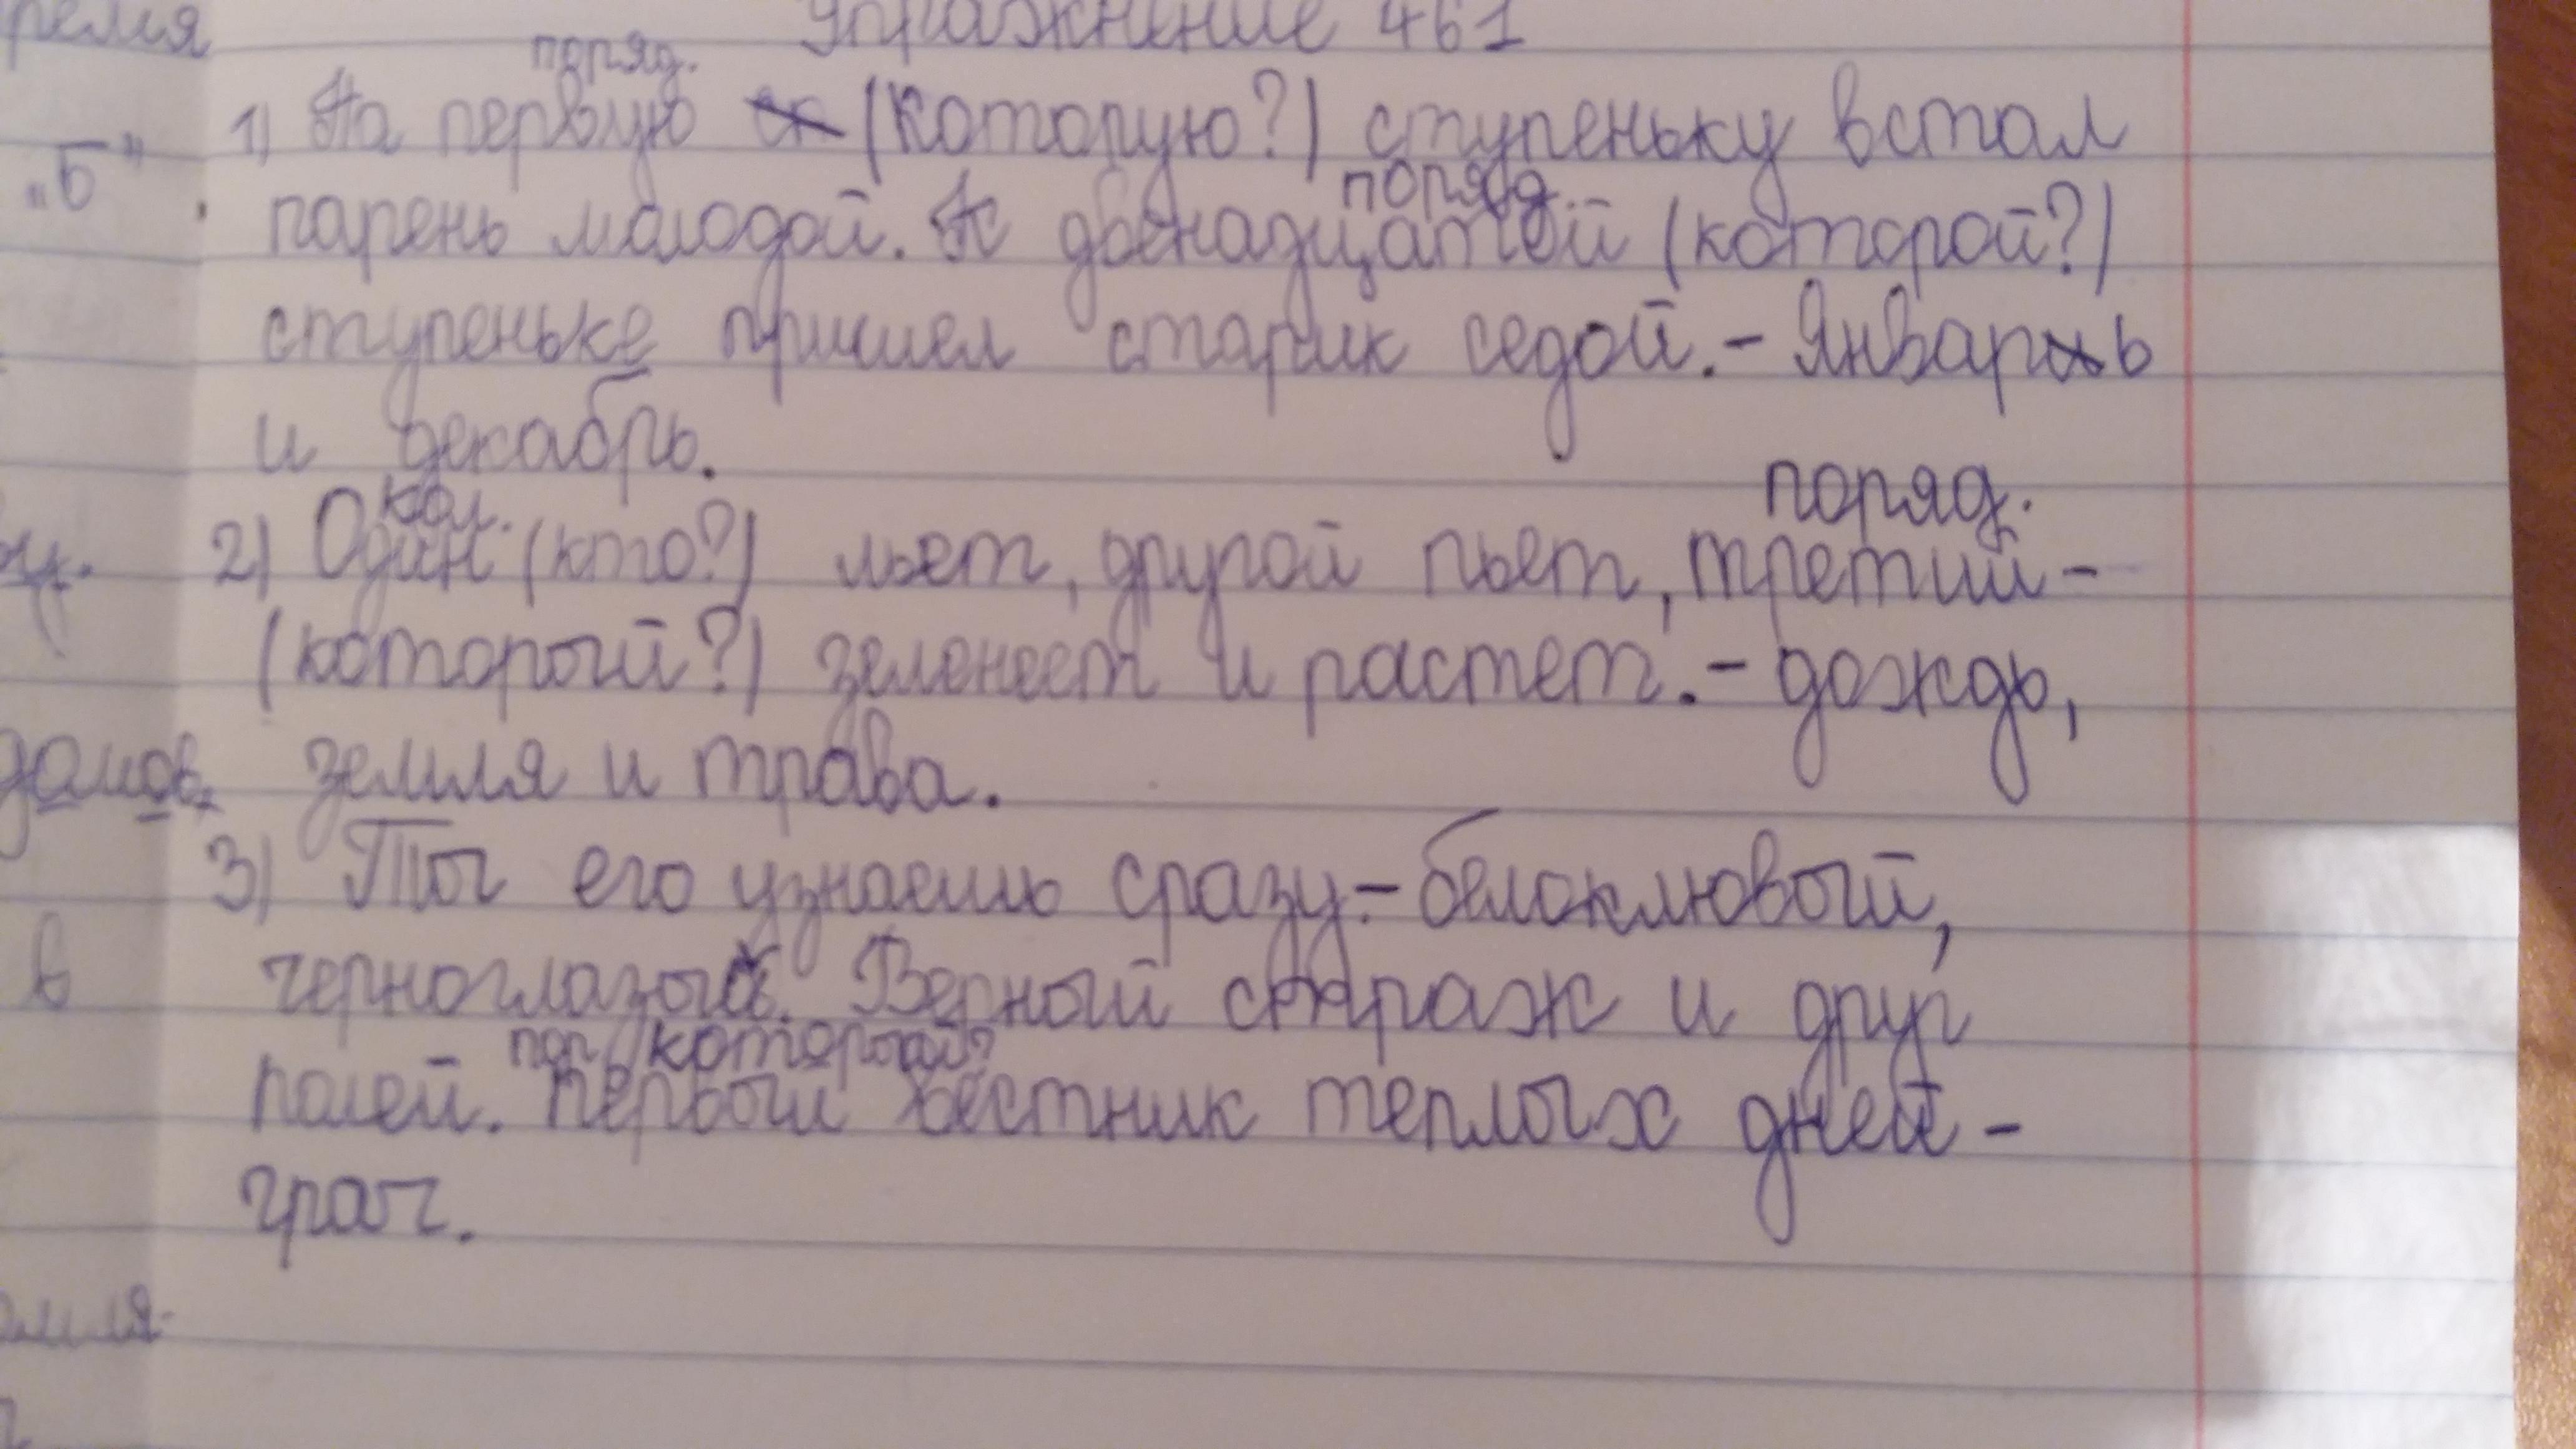 Упражнение 461
ремя
поряд.
1) На первую (которую?) ступеньку встал
„Б”
поряд.
парень молодой. К двенадцатой (которой?)
ступеньке пришел старик седой. – Январь
и декабрь.
кол.
поряд.
2) Один (кто?) льет, другой пьет, третий –
(который?) зеленеет и растет. – дождь,
домов.
земля и трава.
3) Ты его узнаешь сразу – белоклювый,
в
черноглазый. Верный страж и друг
пор. который?
полей. Первый вестник теплых дней –
грач.